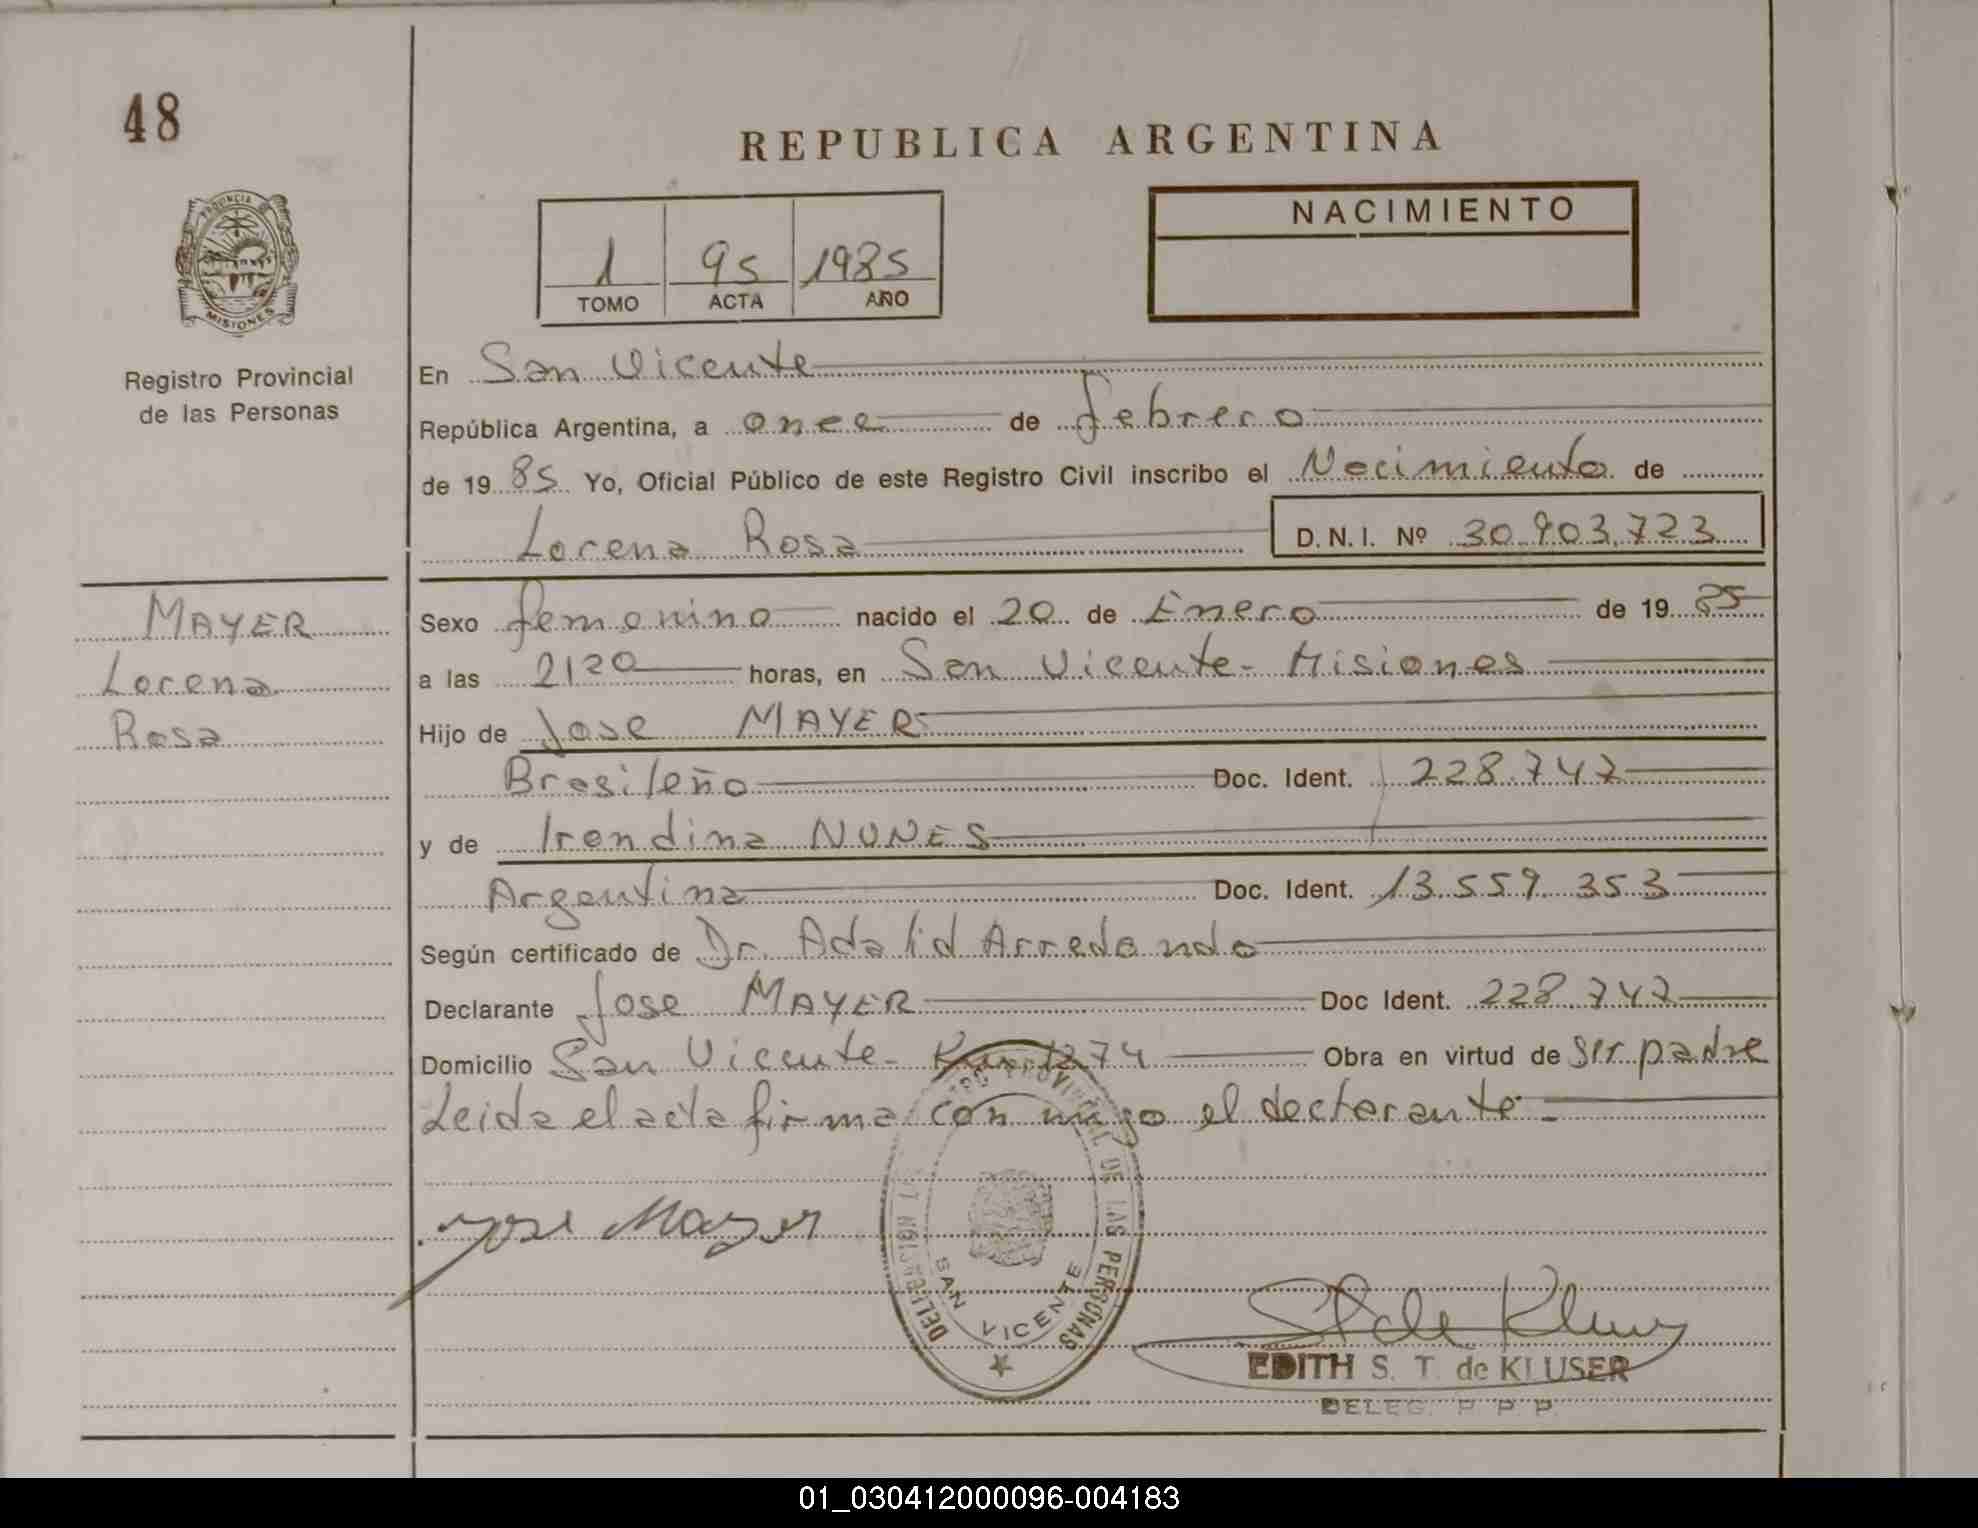 48
REPUBLICA ARGENTINA
NACIMIENTO
1 95 1985
TOMO ACTA AÑO
PROVINCIA DE
MISIONES
Registro Provincial
de las Personas
En San Vicente
República Argentina, a once de febrero
de 19 85 Yo, Oficial Público de este Registro Civil inscribo el Nacimiento de
Lorena Rosa D.N.I. Nº 30.903.723
MAYER
Lorena
Rosa
Sexo femenino nacido el 20 de Enero de 19 85
a las 2120 horas, en San Vicente - Misiones
Hijo de Jose MAYER
Brasileño Doc. Ident. 228.747
y de Irondina NUNES
Argentina Doc. Ident. 13.559.353
Según certificado de Dr. Adalid Arredondo
Declarante Jose MAYER Doc Ident. 228.747
Domicilio San Vicente - Km 1274 Obra en virtud de ser padre
Leida el acta firma con migo el declarante -
Jose Mayer
REGISTRO PROVINCIAL DE LAS PERSONAS
DELEGACION
SAN VICENTE
St de Kluser
EDITH S. T. de KLUSER
DELEG. R P P
01_030412000096-004183